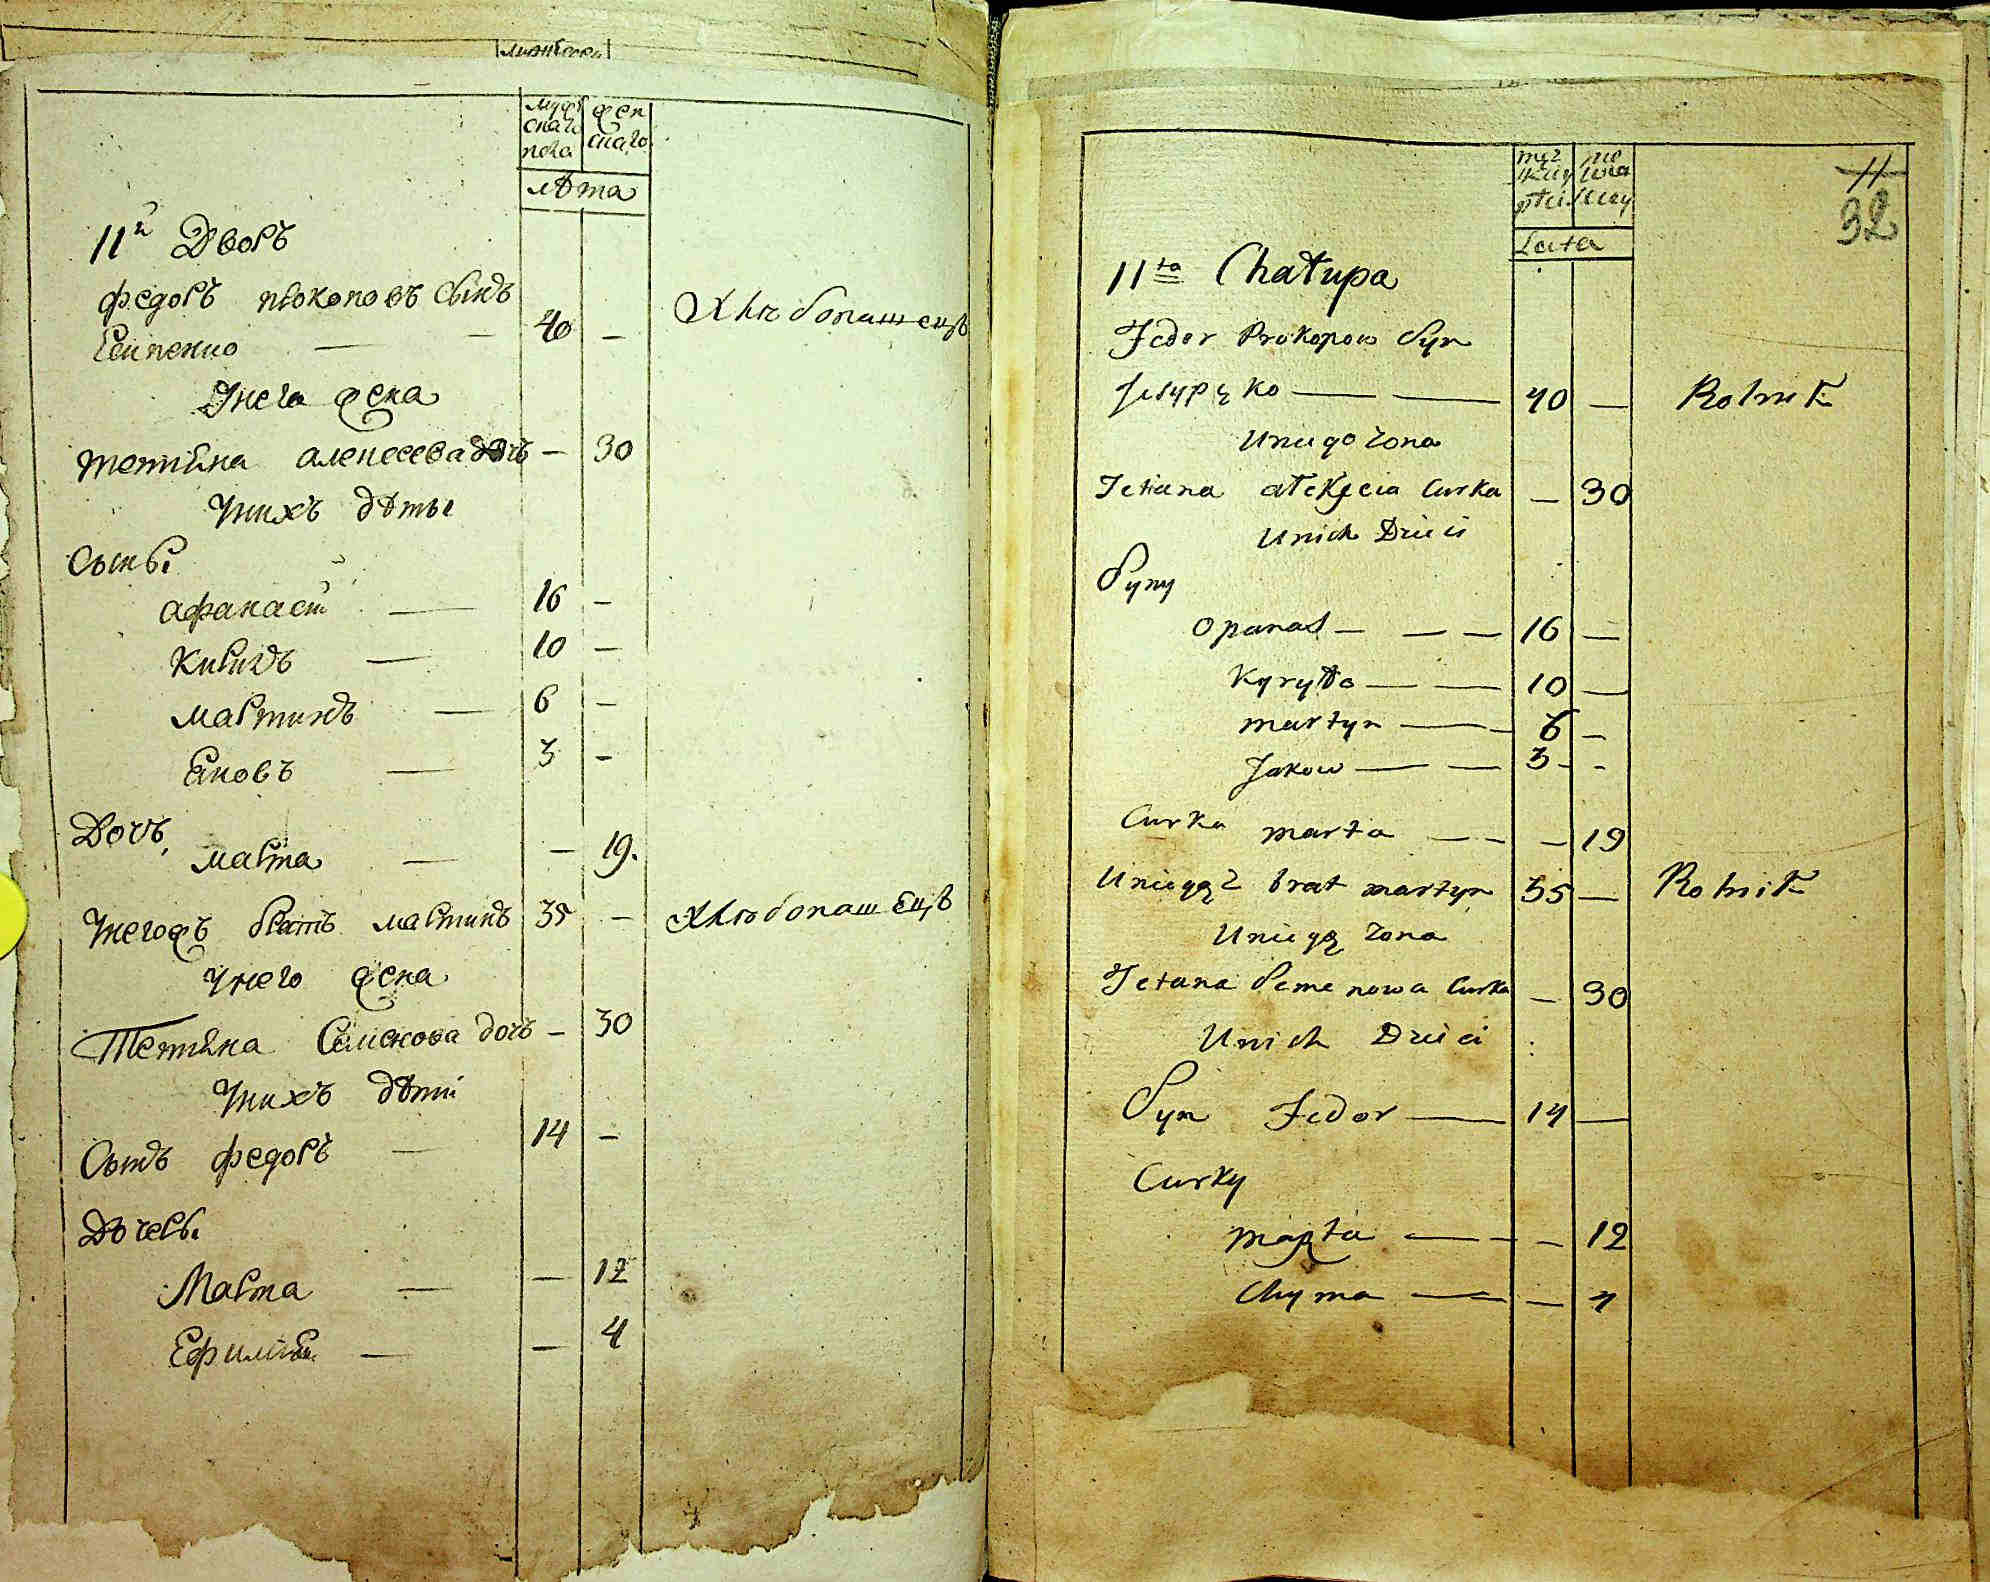 муж
скаго
пола
жен
скаго
лѣта
11й Дворъ
Федоръ Прокоповъ сынъ
Есипенко — — 40 —
Хлѣбопашецъ
Унего жена
Тетияна алексеева дочь — 30
Унихъ дѣты
Сыны
афанасий — 16 —
Кирилъ — 10 —
мартинъ — 6 —
Яковъ — 3 —
Дочь
марта — — 19.
Унегожъ братъ мартинъ 35 —
Хлѣбопашецъ
Унего жена
Тетияна Семенова дочь — 30
Унихъ дѣти
Сынъ федоръ — 14 —
Дочеры
Марта — — 12
Ефимия — — 4
11
32
Lata
11ta Chałupa
Fedor Prokopow Syn
Jesypęko — — 40 — Rolnik
Uniego żona
Tetiana ałekjeia Curka — 30
Unich Dzieci
Syny
Opanas — — — 16 —
Kyryło — — 10 —
martyn — — 6 —
Jakow — — 3 - -
Curka marta — — — 19
Uniegęż brat martyn 35 — Rolnik
Uniegę żona
Tetana Semenowa Curka — 30
Unich Dzieci
Syn Fedor — 14 —
Curky
marta — — — 12
Chyma — — — 4